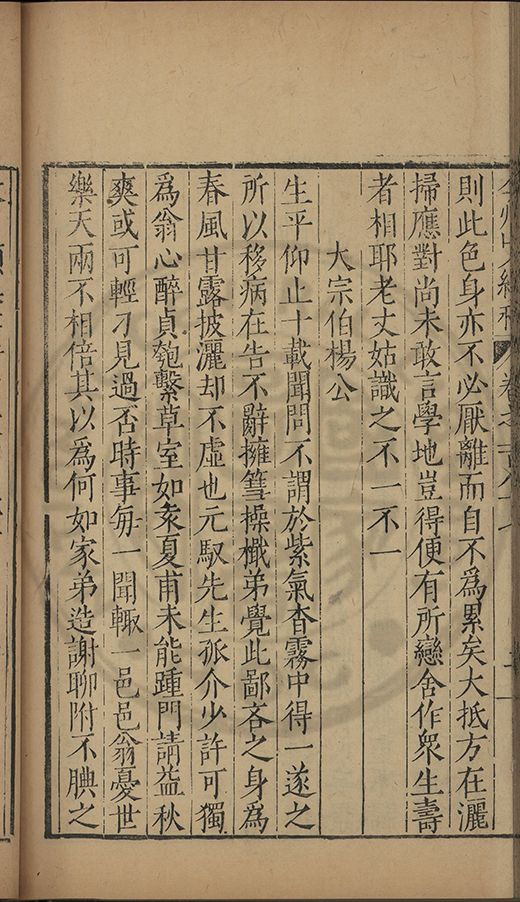 則此色身亦不必厭離而自不為累矣大抵方在灑
掃應對尚未敢言學地豈得便有所戀舍作衆生壽
者相耶老丈姑識之不一不一
大宗伯楊公
生平仰止十載聞問不謂於紫氣杳霧中得一遂之
所以移病在告不辭擁篲操櫼弟覺此鄙吝之身為
春風甘露披灑却不虛也元馭先生孤介少許可獨
為翁心醉貞匏繫草室如袁夏甫未能踵門請益秋
爽或可輕刀見過否時事每一聞輙一邑邑翁憂世
樂天兩不相倍其以為何如家弟造謝聊附不腆之